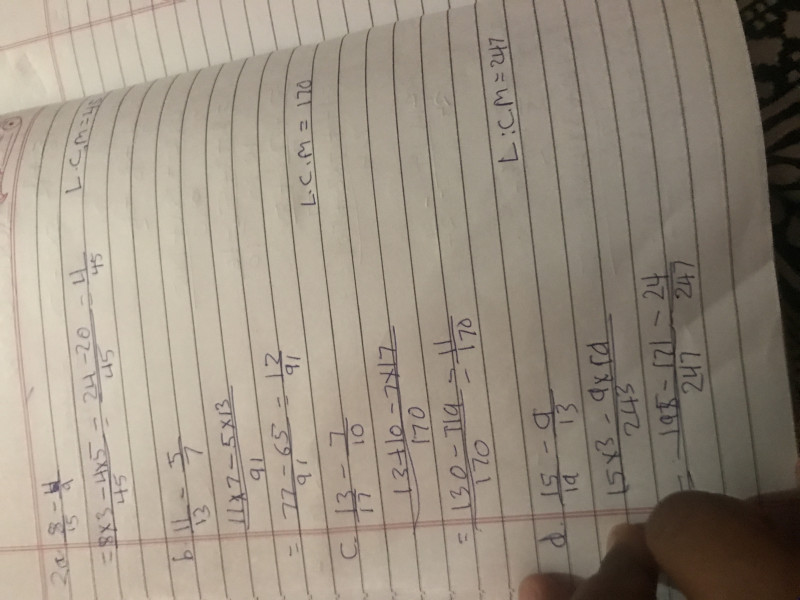 2a. 8/15 - 4/9 L.C.M = 45
= 8x3 - 4x5/45 = 24 - 20/45 = 4/45
b. 11/13 - 5/7
11x7 - 5x13/91
= 77 - 65/91 = 12/91
L.C.M = 170
c. 13/17 - 7/10
13+10 - 7x17/170
= 130 - 119/170 = 11/170
L.C.M = 247
d. 15/19 - 9/13
15x3 - 9x19/243
= 195 - 171/247 - 24/247